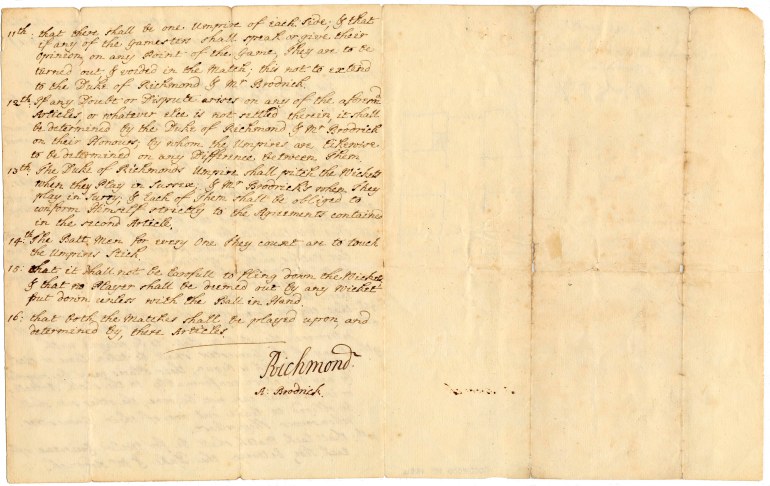 11th: that there shall be one Umpire of each Side; & that
if any of the Gamesters shall speak or give their
Opinion, on any Point of the Game, They are to be
turned out & voided in the Match; this not to extend
to the Duke of Richmond & Mr Brodrick.
12th: If any Doubt or Dispute arises on any of the aforemd
Articles, or whatever else is not settled therein, it shall
be determined by the Duke of Richmond & Mr Brodrick
on their Honours; by whom the Umpires are likewise
to be determined on any Difference between Them.
13th: The Duke of Richmond's Umpire shall pitch the Wickets
when they Play in Sussex; & Mr Brodrick's when They
play in Surry; & Each of Them shall be obliged to
conform Himself strictly to the Agreements contained
in the second Article.
14th: The Batt Men for every One They count are to touch
the Umpires Stick.
15: that it shall not be lawfull to fling down the Wickets,
& that no Player shall be deemed out by any Wicket
put down unless with the Ball in Hand.
16: that both the Matches shall be played upon and
determined by, these Articles.
Richmond
A: Brodrick.